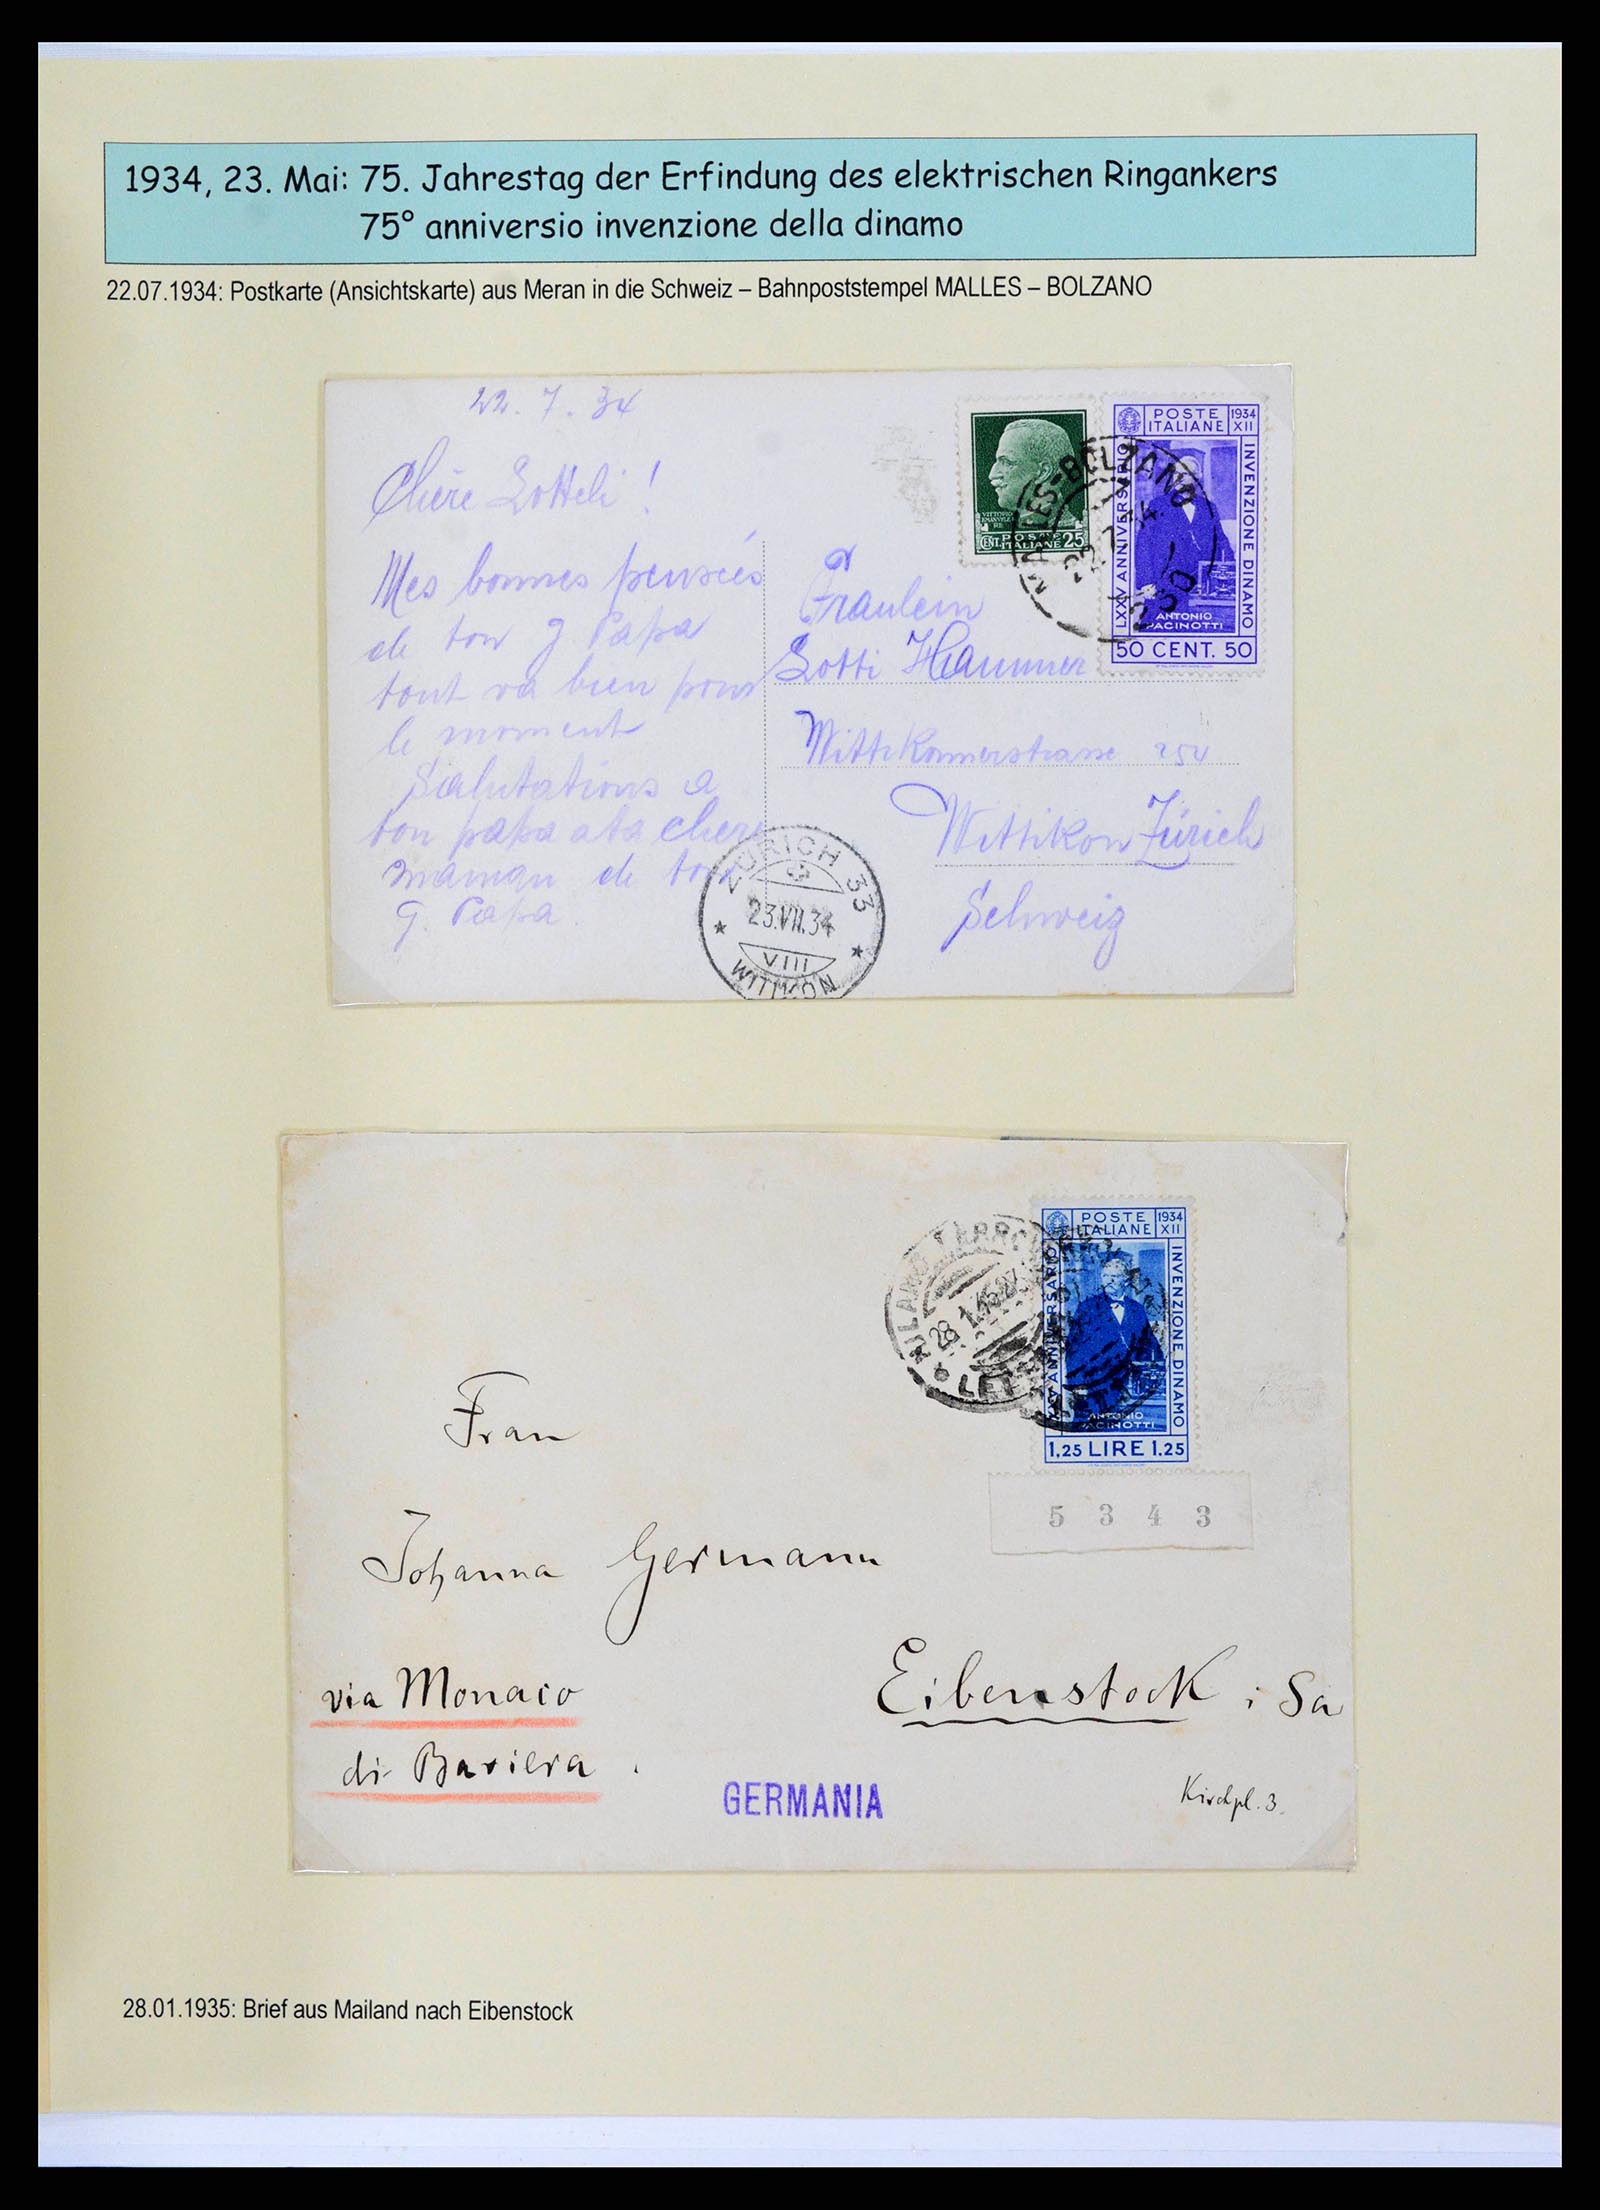 1934, 23. Mai: 75. Jahrestag der Erfindung des elektrischen Ringankers
75° anniversio invenzione della dinamo
22.07.1934: Postkarte (Ansichtskarte) aus Meran in die Schweiz – Bahnpoststempel MALLES – BOLZANO
22. 7. 34
Chère Lotteli !
Mes bonnes pensées
de ton g. Papa
tout va bien pour
le moment
Salutations a
ton papa a ta chere
maman de ton
g. Papa.
VITTORIO
EMANUELE
RE
CENT. POSTE ITALIANE 25
POSTE ITALIANE
1934 XII
LXXV ANNIVERSARIO
INVENZIONE DINAMO
ANTONIO
PACINOTTI
50 CENT. 50
MALLES-BOLZANO
22.7.34.
230
Fräulein
Lotti Hammer
Wittikonnerstrasse 254
Wittikon Zürich
Schweiz
ZÜRICH 33
23.VII.34
VIII
WITIKON
POSTE ITALIANE
1934 XII
LXXV ANNIVERSARIO
INVENZIONE DINAMO
ANTONIO
PACINOTTI
1,25 LIRE 1.25
MILANO FERROVIA
28.1.
5 3 4 3
Frau
Johanna Germann
via Monaco
di Baviera.
Eibenstock i Sa
GERMANIA
Kirchpl. 3.
28.01.1935: Brief aus Mailand nach Eibenstock